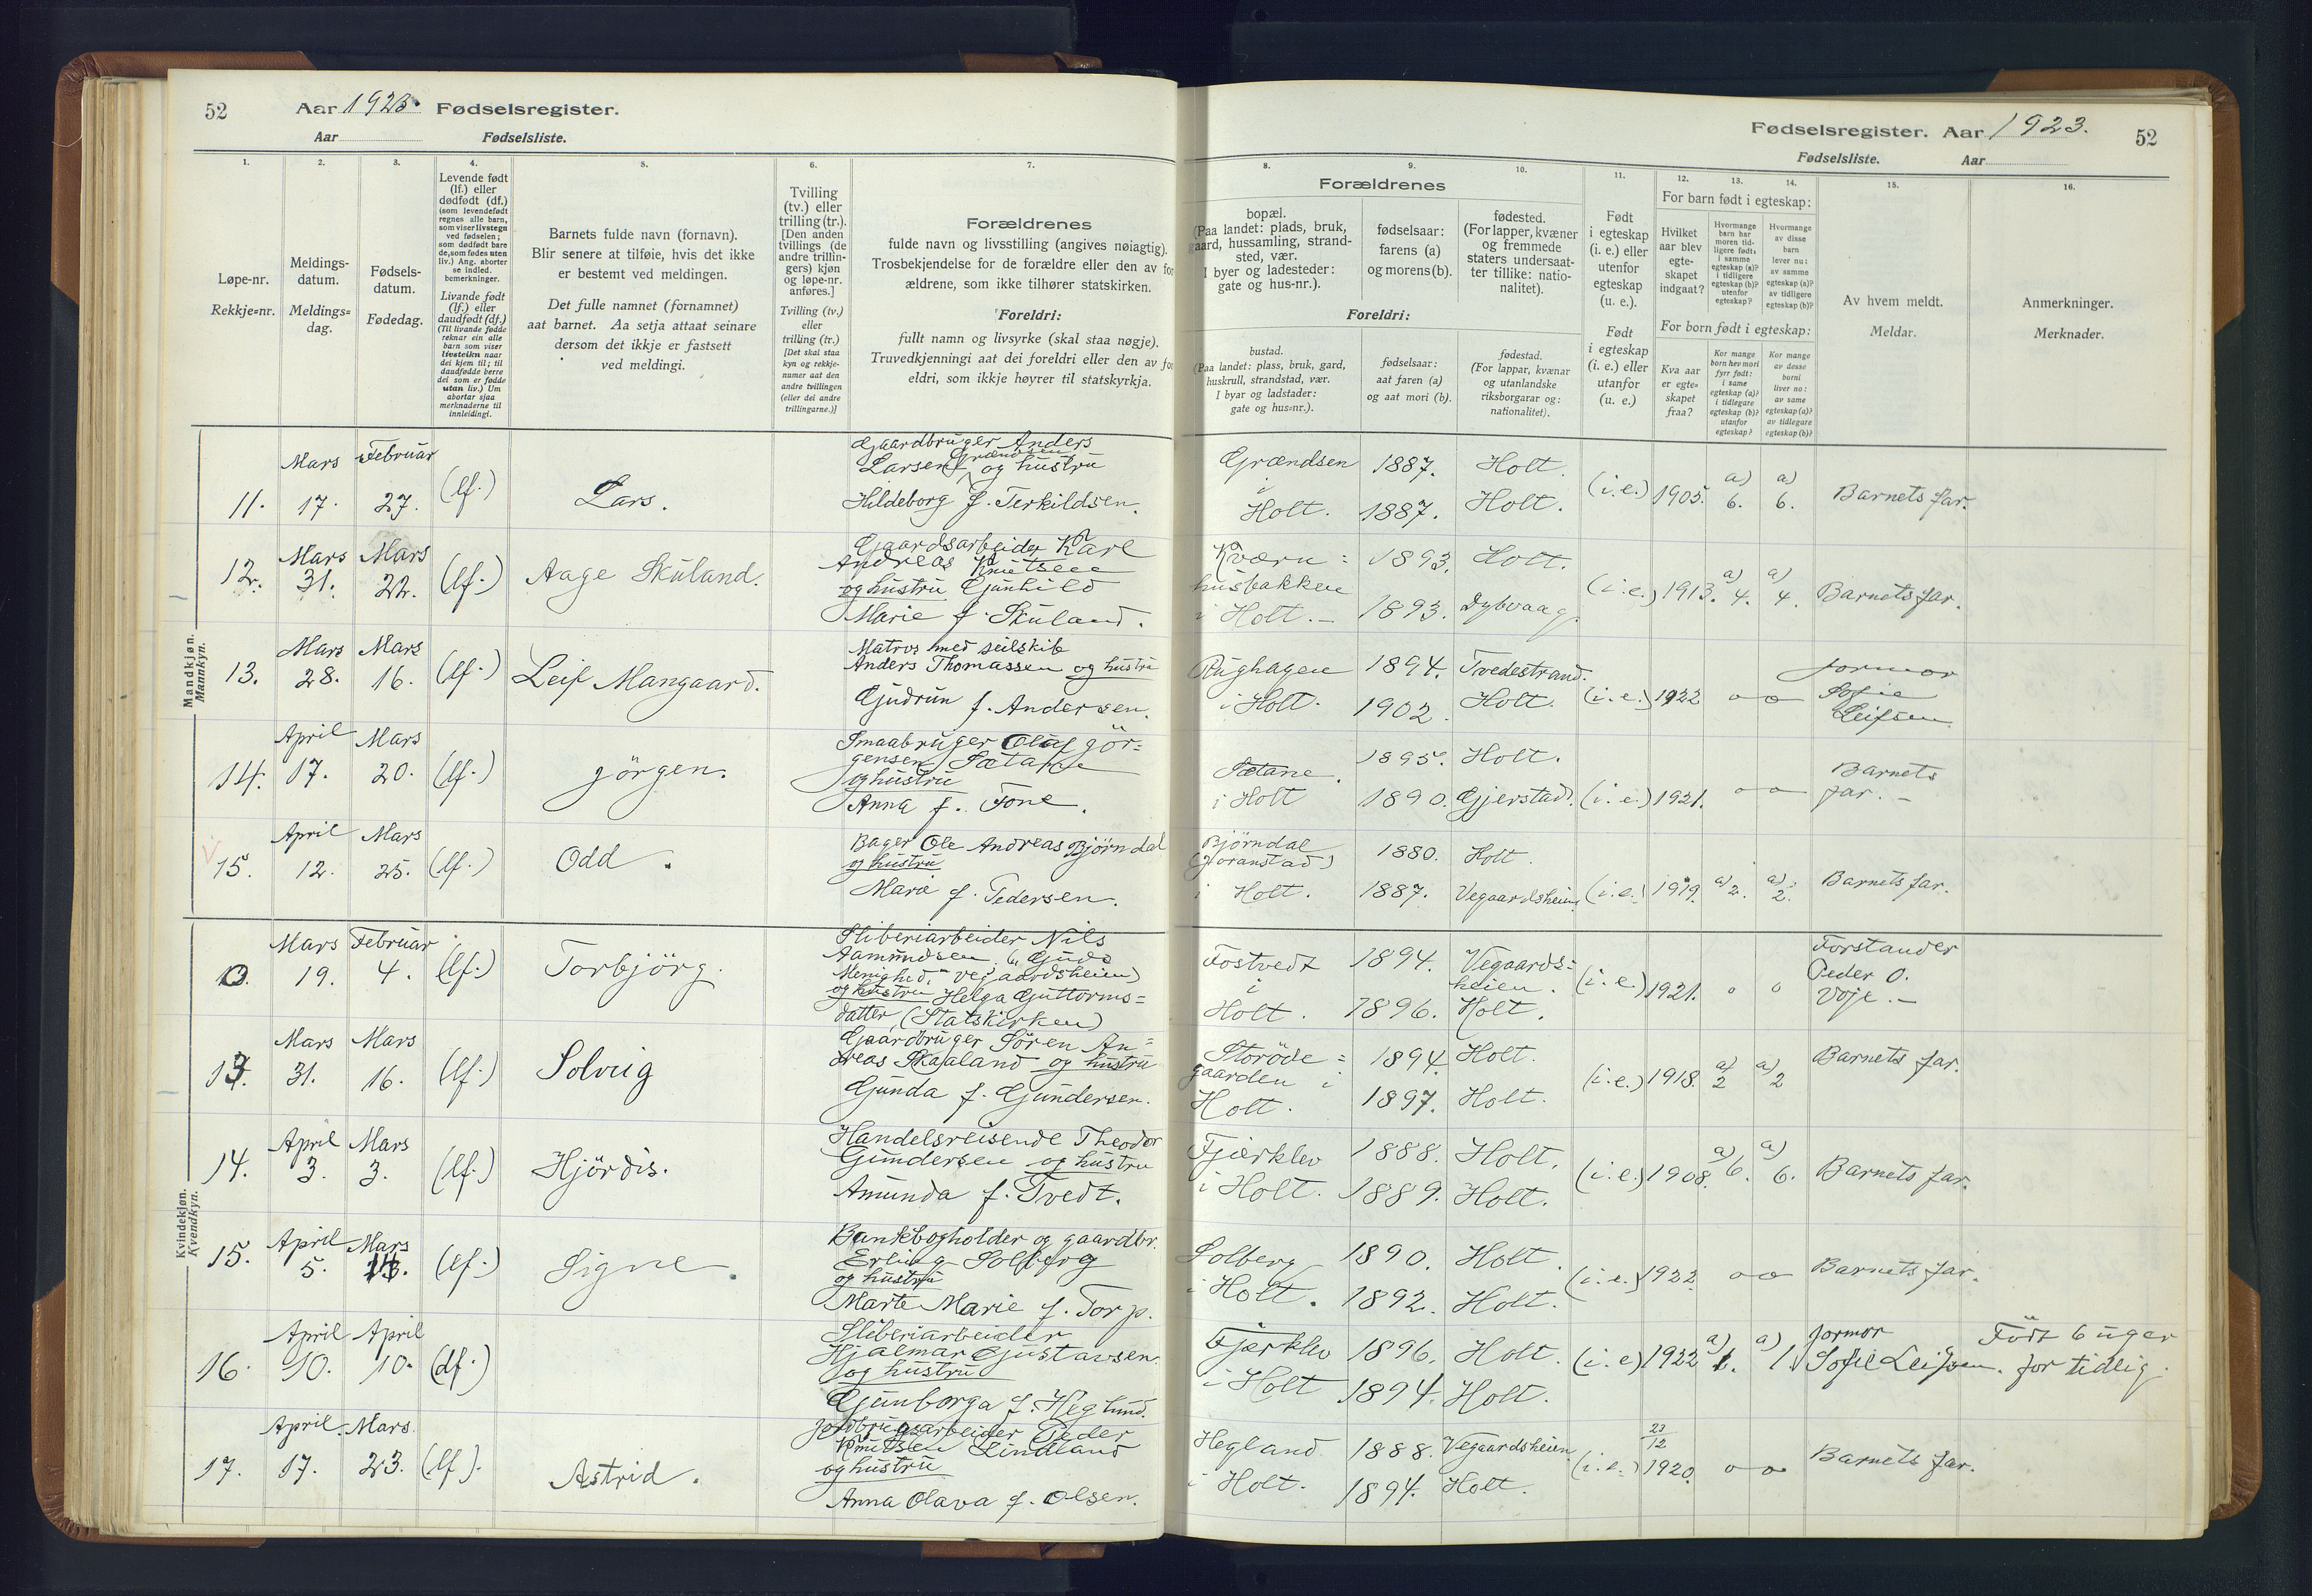 52 Aar 1923. Fødselsregister.
Aar Fødselsliste.
1. 2. 3. 4. 5. 6. 7.
Løpe-nr.
Rekkje=nr.
Meldings-
datum.
Meldings=
dag.
Fødsels-
datum.
Fødedag.
Levende født
(lf.) eller
dødfødt (df.)
(som levendefødt
regnes alle barn,
som viser livstegn
ved fødselen;
som dødfødt bare
de, som fødes uten
liv.) Ang. aborter
se indled.
bemerkninger.
Livande født
(lf.) eller
daudfødt (df.)
(Til livande fødde
reknar ein alle
barn som viser
livsteikn naar
dei kjem til; til
daudfødde berre
dei som er fødde
utan liv.) Um
abortar sjaa
merknaderne til
innleidingi.
Barnets fulde navn (fornavn).
Blir senere at tilføie, hvis det ikke
er bestemt ved meldingen.
Det fulle namnet (fornamnet)
aat barnet. Aa setja attaat seinare
dersom det ikkje er fastsett
ved meldingi.
Tvilling
(tv.) eller
trilling (tr.).
[Den anden
tvillings (de
andre trillin-
gers) kjøn
og løpe-nr.
anføres.]
Tvilling (tv.)
eller
trilling (tr.)
[Det skal staa
kyn og rekkje-
numer aat den
andre tvillingen
(eller dei andre
trillingarne.)]
Forældrenes
fulde navn og livsstilling (angives nøiagtig).
Trosbekjendelse for de forældre eller den av for
ældrene, som ikke tilhører statskirken.
Foreldri:
fullt namn og livsyrke (skal staa nøgje).
Truvedkjenningi aat dei foreldri eller den av for
eldri, som ikkje høyrer til statskyrkja.
Mandkjøn.
Mannkyn.
11. Mars 17. Februar 27. (lf.) Lars.
Gaardbruger Anders
Larsen Grændsen og hustru
Hildeborg f. Terkildsen.
12. Mars 31. Mars 22. (lf.) Aage Skuland.
Gaardsarbeider Karl
Andreas Knutsen
og hustru Gunhild
Marie f. Skuland.
13. Mars 28. Mars 16. (lf.) Leif Mangaard.
Matros med seilskib
Anders Thomassen og hustru
Gudrun f. Andersen.
14. April 17. Mars 20. (lf.) Jörgen.
Smaabruger Olaf Jör=
gensen Sætane
og hustru
Anna f. Tone.
15. April 12. Mars 25. (lf.) Odd.
Bager Ole Andreas Bjørndal
og hustru
Marie f. Pedersen.
Kvindekjøn.
Kvendkyn.
Mars 19. Februar 4. (lf.) Torbjörg.
Sliberiarbeider Nils
Aamundsen. (" Guds
Menighed." Vegaardsheien)
og hustru Helga Guttorms=
datter. (Statskirken)
13. Mars 31. Mars 16. (lf.) Solveig
Gaardbruger Sören An=
dreas Skaaland og hustru
Gunda f. Gundersen.
14. April 3. Mars 3. (lf.) Hjördis.
Handelsreisende Theodor
Gundersen og hustru
Amunda f. Tvedt.
15. April 5. Mars (lf.) Signe.
Bankbogholder og gaardbr.
Erling Solberg
og hustru
Marte Marie f. Torp.
16. April 10. April 10. (df.)
Sliberiarbeider
Hjalmar Gustavsen
og hustru
Gunborga f. Heglund.
17. April 17. Mars 23. (lf.) Astrid.
Jordbrugsarbeider Peder
Knutsen Lindland
og hustru
Anna Olava f. Olsen.
Fødselsregister. Aar 1923. 52
Fødselsliste. Aar
8. 9. 10. 11. 12. 13. 14. 15. 16.
Forældrenes
bopæl.
(Paa landet: plads, bruk,
gaard, hussamling, strand-
sted, vær.
I byer og ladesteder:
gate og hus-nr.).
fødselsaar:
farens (a)
og morens (b).
fødested.
(For lapper, kvæner
og fremmede
staters undersaat-
ter tillike: natio-
nalitet).
Foreldri:
bustad.
(Paa landet: plass, bruk, gard,
huskrull, strandstad, vær.
I byar og ladstader:
gate og hus=nr.).
fødselsaar:
aat faren (a)
og aat mori (b).
fødestad.
(For lappar, kvænar
og utanlandske
riksborgarar og:
nationalitet).
Født
i egteskap
(i. e.) eller
utenfor
egteskap
(u. e.).
Født
i egteskap
(i. e.) eller
utanfor
(u. e.)
For barn født i egteskap:
Hvilket
aar blev
egte-
skapet
indgaat?
Hvormange
barn har
moren tid-
ligere født,
i samme
egteskap (a)?
i tidligere
egteskap (b)?
utenfor
egteskap?
Hvormange
av disse
barn
lever nu:
av samme
egteskap (a)?
av tidligere
egteskap (b)?
For born født i egteskap:
Kva aar
er egte=
skapet
fraa?
Kor mange
born hev mori
fyrr født:
i same
egteskap (a)?
i tidlegare
egteskap (b)?
utanfor
egteskap?
Kor mange
av desse
borni
liver no:
av same
egteskap (a)?
av tidlegare
egteskap (b)?
Av hvem meldt.
Meldar.
Anmerkninger.
Merknader.
Grændsen 1887. Holt.
i Holt. 1887. Holt. (i.e.) 1905. a) 6. a) 6. Barnets far.
Kværn= 1893. Holt.
husbakken
i Holt. 1893. Dybvaag. (i.e.) 1913. a) 4. a) 4. Barnets far.
Rughagen 1894. Tvedestrand.
i Holt. 1902. Holt. (i.e.) 1922 o o Jormor
Sofie
Leifsen
Sætane. 1895. Holt.
i Holt 1890. Gjerstad. (i.e.) 1921. o o Barnets
far.
Bjørndal 1880. Holt.
(Goranstad)
i Holt. 1887. Vegaardsheien (i.e.) 1919. a) 2. a) 2. Barnets far.
Fostvedt 1894. Vegaards=
heien.
i Holt. 1896. Holt. (i.e.) 1921. o o Forstander
Peder O.
Voje.
Storöde= 1894 Holt.
gaarden i
Holt. 1897. Holt. (i.e.) 1918. a) 2 a) 2 Barnets far.
Fjærklev 1888. Holt.
i Holt. 1889. Holt. (i.e.) 1908. a) 6. a) 6. Barnets far.
Solberg 1890. Holt.
i Holt. 1892. Holt. (i.e.) 1922 o o Barnets far.
Fjærklev 1896. Holt.
i Holt 1894. Holt. (i.e) 1922 a) 1. a) 1. Jormor
Sofie Leifsen. Födt 6 uger
for tidlig.
Hegland 1888. Vegaardsheien
i Holt. 1894. Holt. (i.e.) 23/12 1920. o o Barnets far.